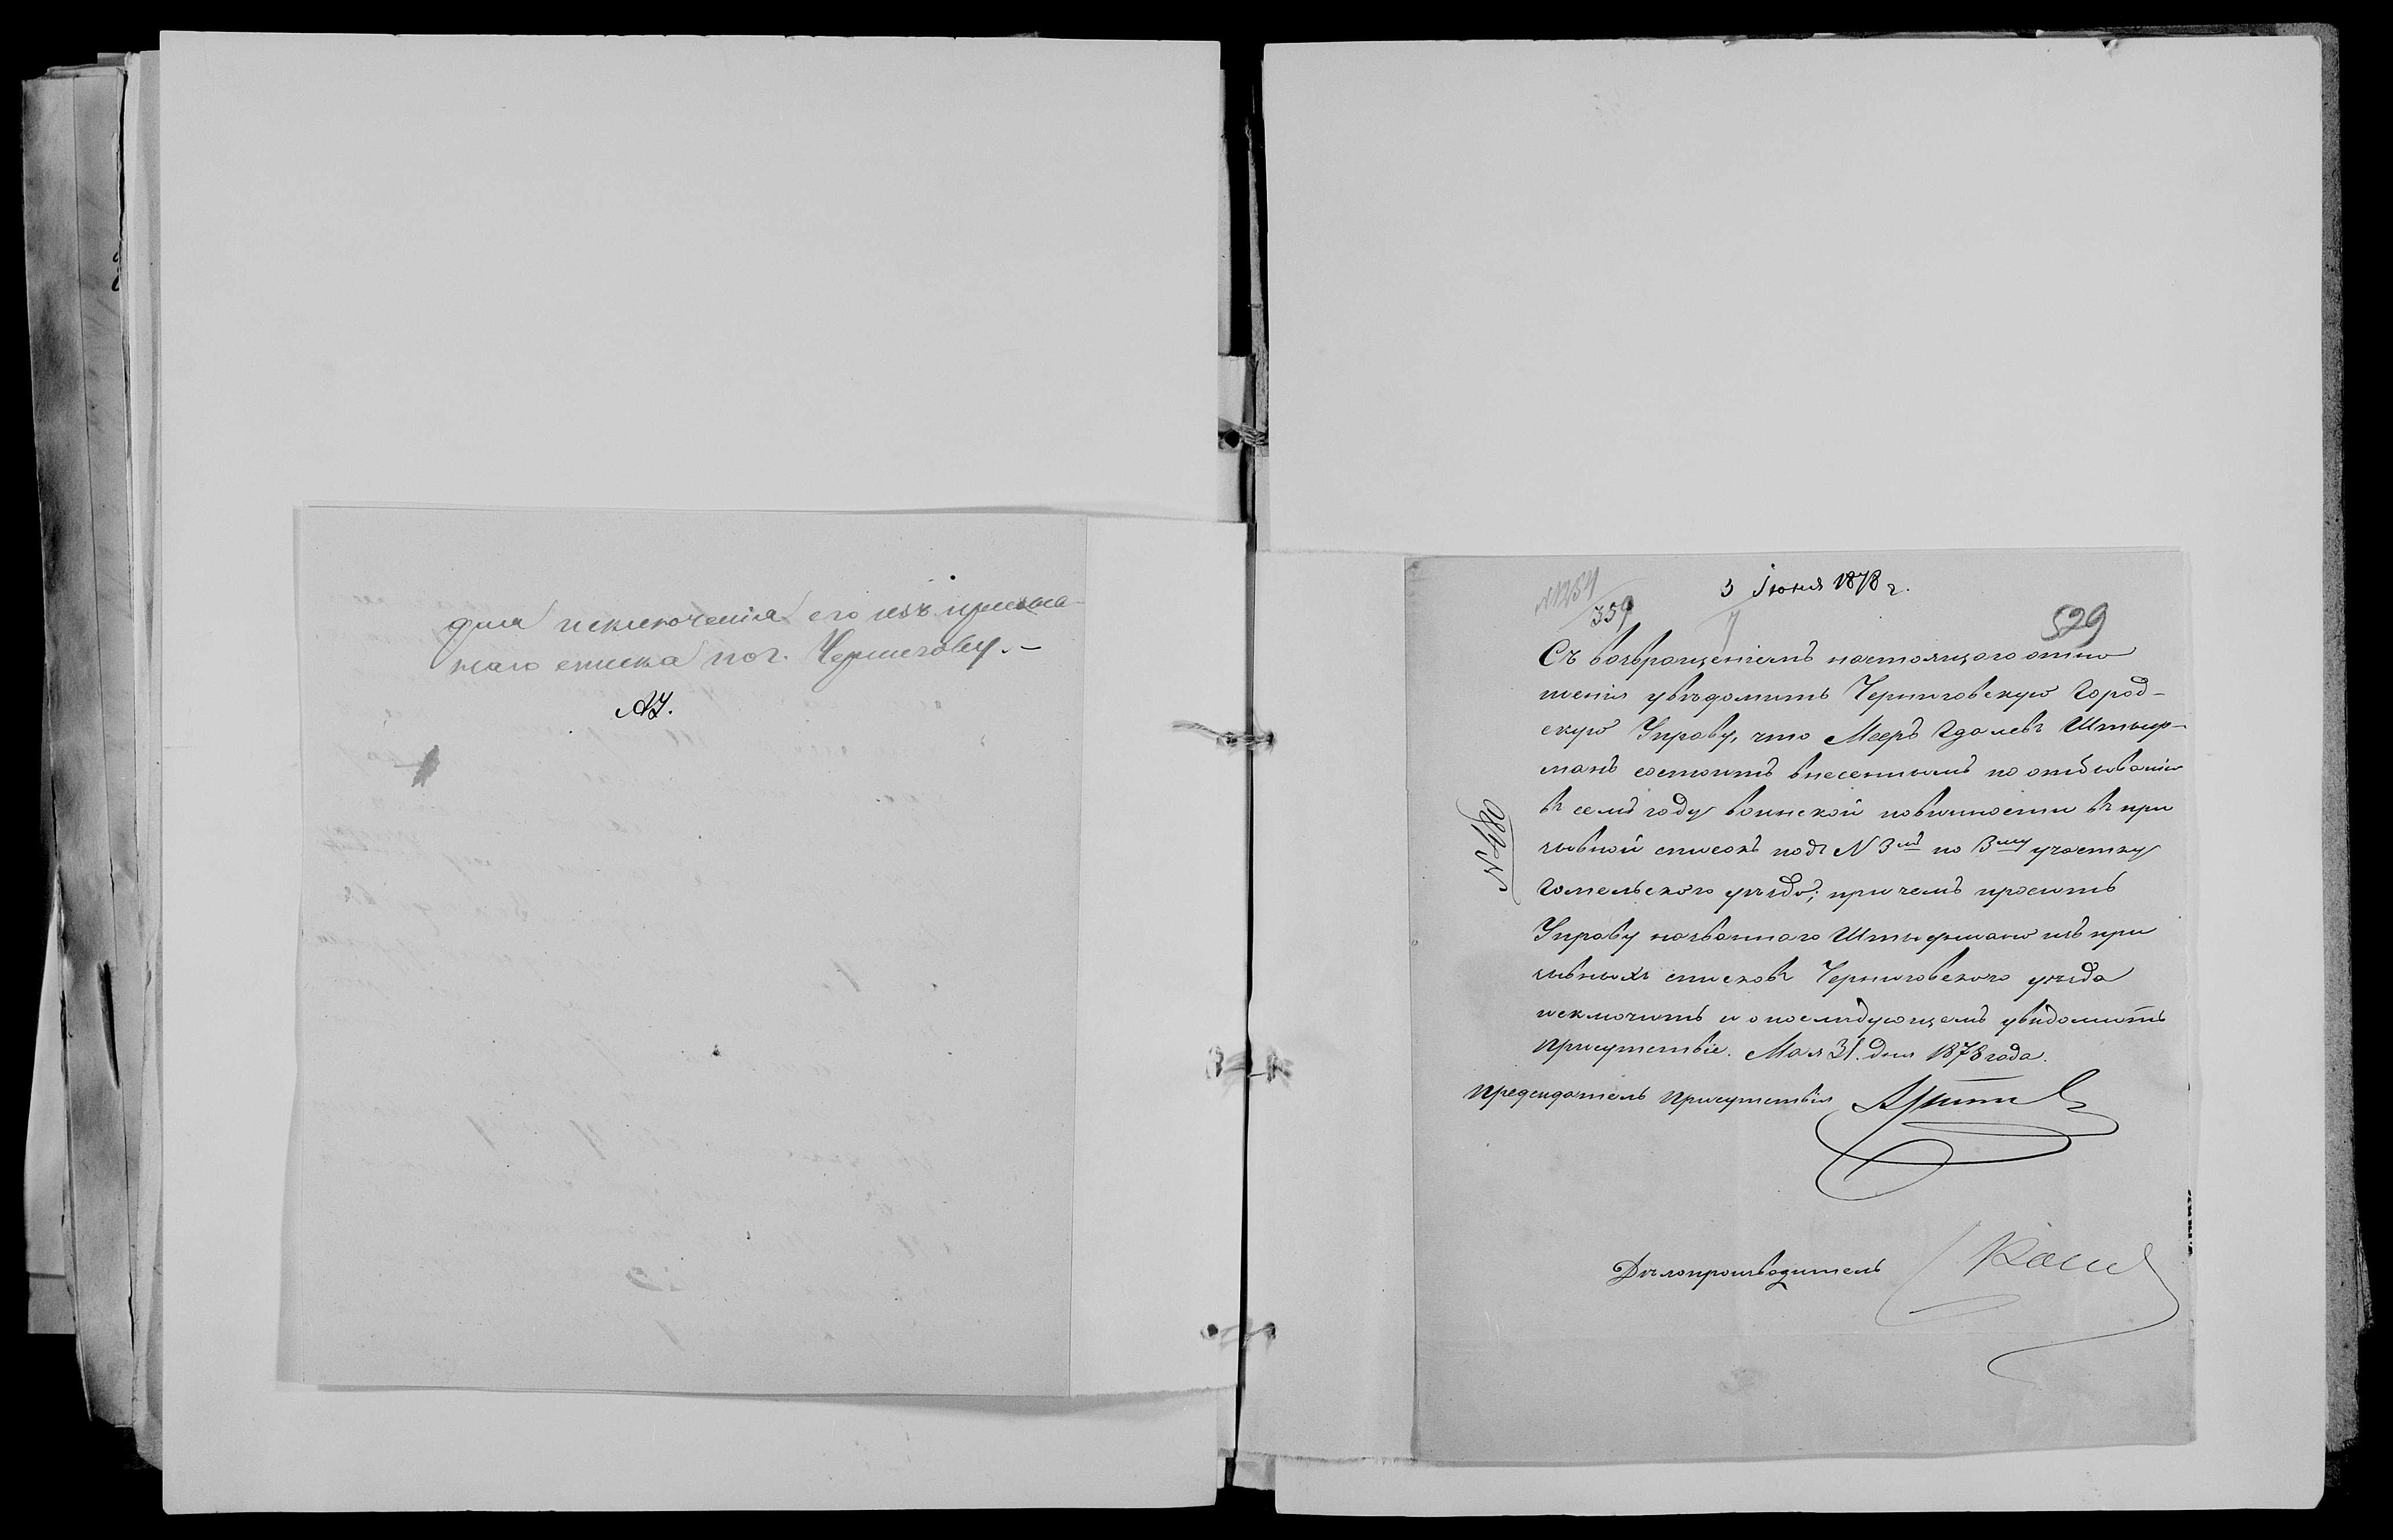 для исключенія его изъ призыв-
наго списка по г. Чернигову. –
АУ.
N 1254
359
3 Іюня 1878 г.
529
Съ возвращеніемъ настоящаго отно
шенія увѣдомить Черниговскую Город-
скую Управу, что Мееръ Гдалевъ Штыр-
манъ состоитъ внесеннымъ по отбыванію
въ семъ году воинской повинности въ при
зывной списокъ подъ N 3мъ по 3му участку
Гомельского уѣзда; при чемъ проситъ
Управу названнаго Штырмана изъ при
зывныхъ списковъ Черниговскаго уѣзда
исключить и о послѣдующемъ увѣдомить
Присутствіе. Мая 31. дня 1878 года.
N 480
Председатель Присутствія
Дѣлопроизводитель